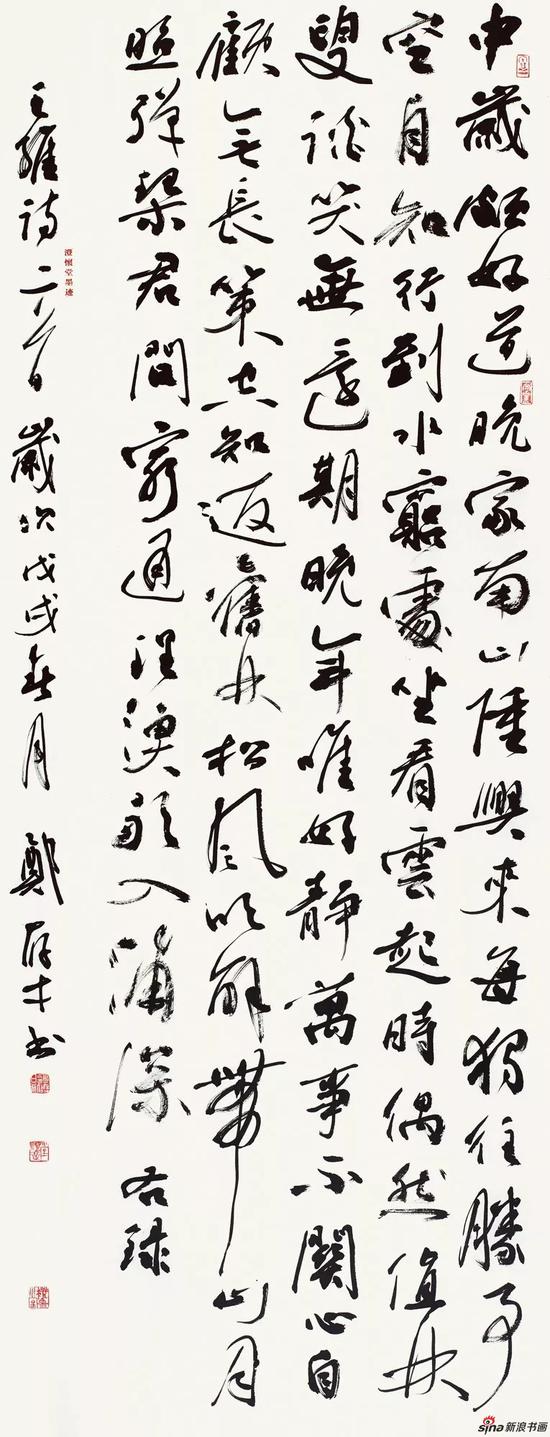 中歲頗好道晚家南山陲興來每獨往勝事
空自知行到水窮處坐看雲起時偶然值林
叟談笑無還期晚年唯好靜萬事不關心自
顧無長策空知返舊林松風吹解帶山月
照彈琴君問窮通理漁歌入浦深 右錄
王維诗二首 歲次戊戌春月 鄭才书
澄懷堂墨迹
sina新浪书画